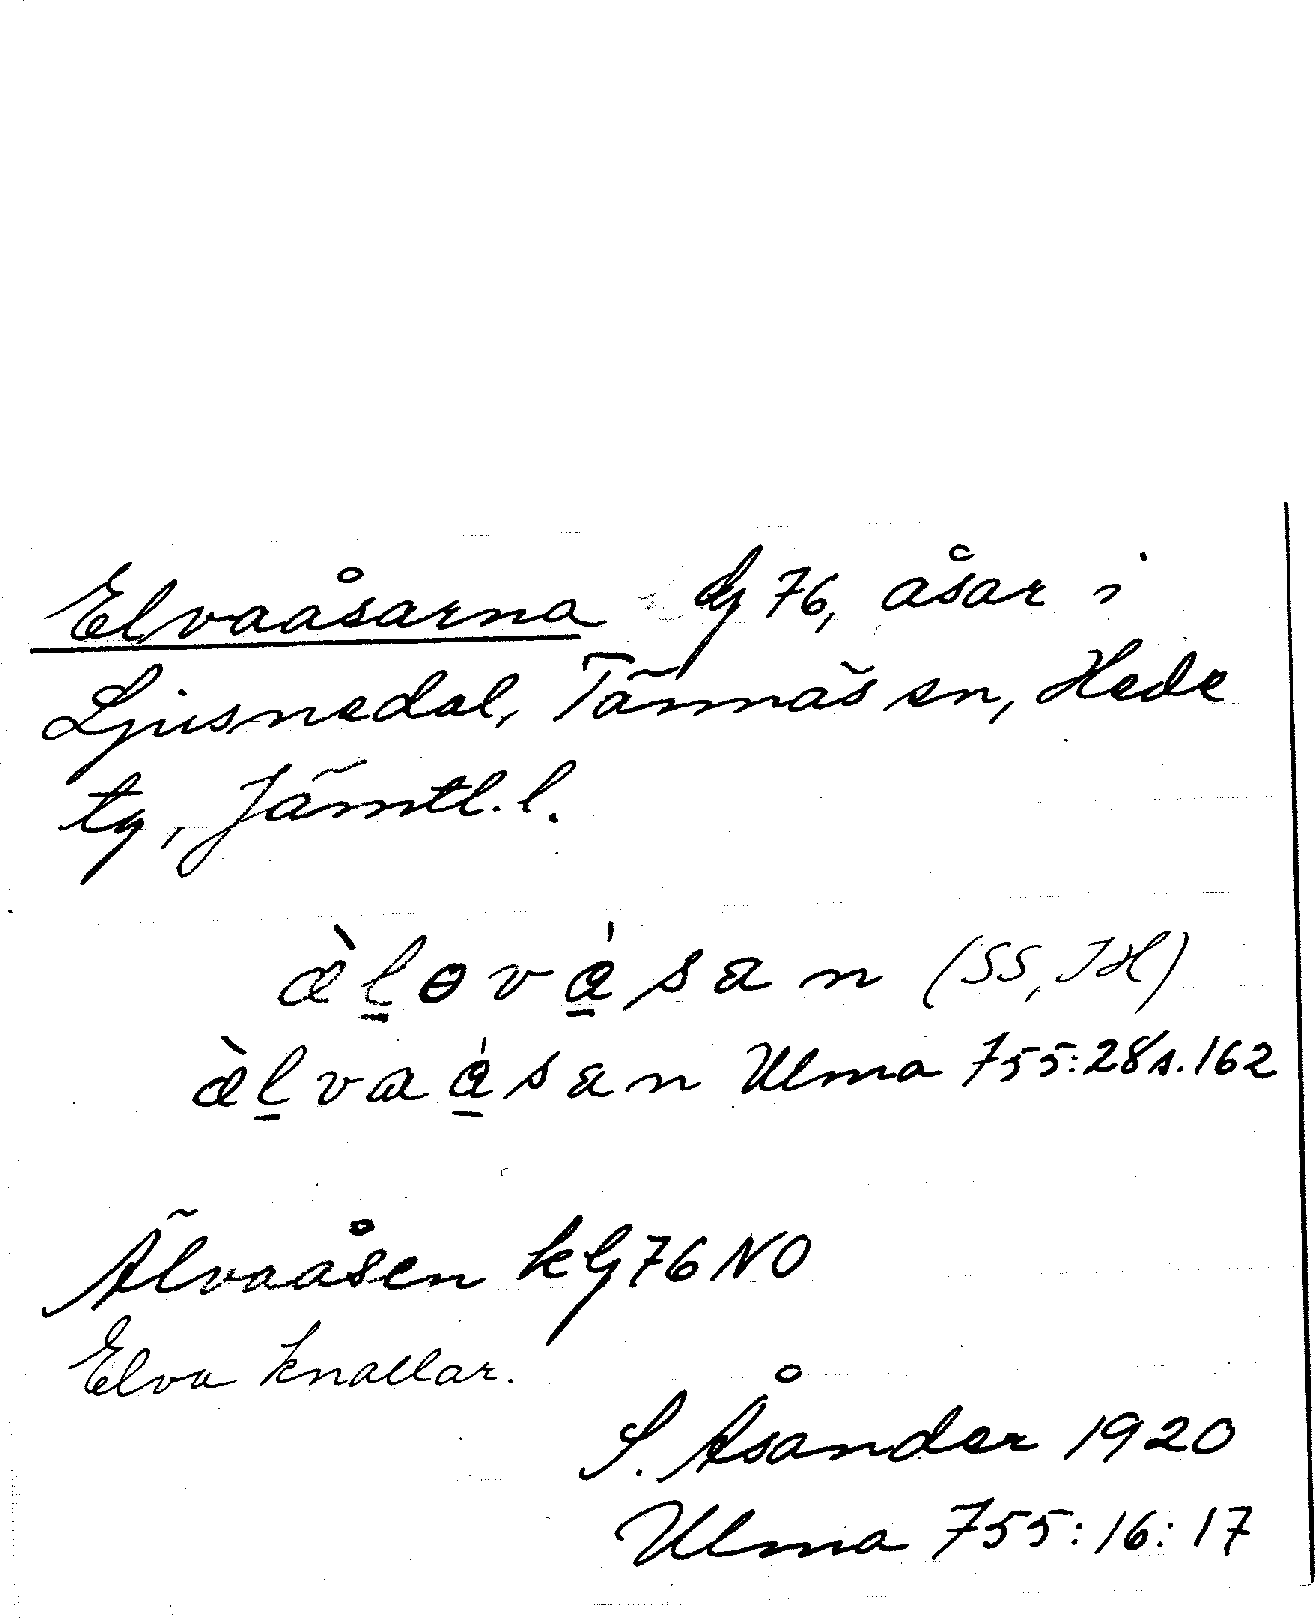 Elvaåsarna dg 76, åsar i
Ljusnedal, Tännäs sn, Hede
tg, Jämtl. l.
æ̀l̠ɵvǻ̠san (SS, JH)
æ̀l̠vaǻ̠san Ulma 755:28 s. 162
Älvaåsen kg 76 NO
Elva knallar.
S. Åsander 1920
Ulma 755:16:17